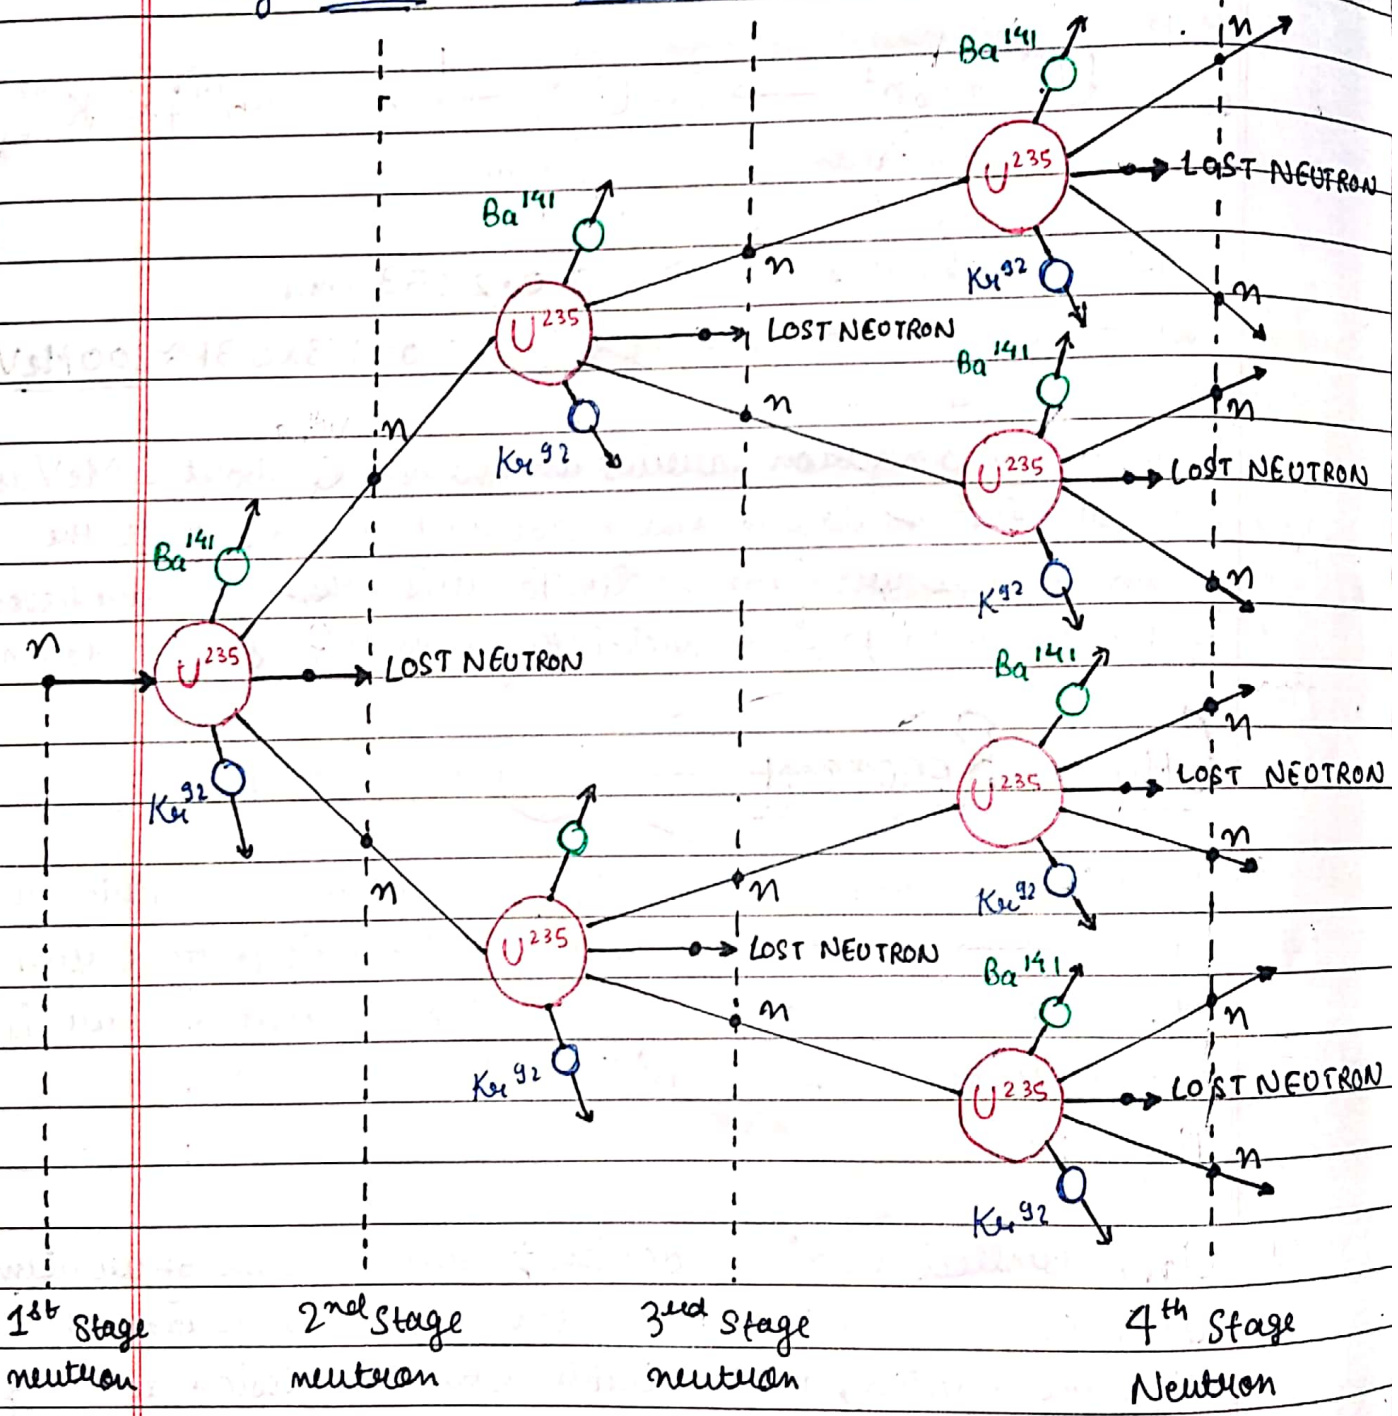 n
Ba¹⁴¹
Ba¹⁴¹
U²³⁵
LOST NEUTRON
U²³⁵
n
Kr⁹²
n
Ba¹⁴¹
LOST NEOTRON
U²³⁵
n
n
n
Kr⁹²
U²³⁵
LOST NEUTRON
Ba¹⁴¹
n
K⁹²
n
U²³⁵
LOST NEUTRON
Ba¹⁴¹
n
Kr⁹²
U²³⁵
LOST NEUTRON
n
n
n
Kr⁹²
U²³⁵
LOST NEUTRON
Ba¹⁴¹
n
n
Kr⁹²
U²³⁵
LOST NEUTRON
n
Kr⁹²
1st Stage neutron
2nd Stage neutron
3rd Stage neutron
4th Stage Neutron